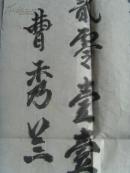 貳零壹壹
曹秀兰